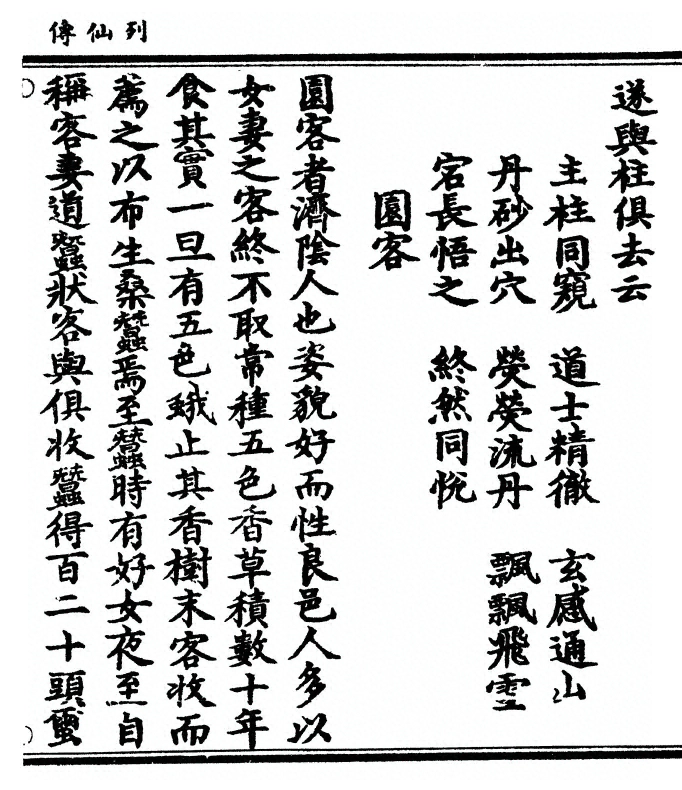 列仙傳
遂與柱俱去云
主柱同窺 道士精徹 玄感通山
丹砂出穴 熒熒流丹 飄飄飛雪
宕長悟之 終然同悅
園客
園客者濟陰人也姿貌好而性良邑人多以
女妻之客終不取常種五色香草積數十年
食其實一旦有五色蛾止其香樹末客收而
薦之以布生桑蠶焉至蠶時有好女夜至自
稱客妻道蠶狀客與俱收蠶得百二十頭蠒